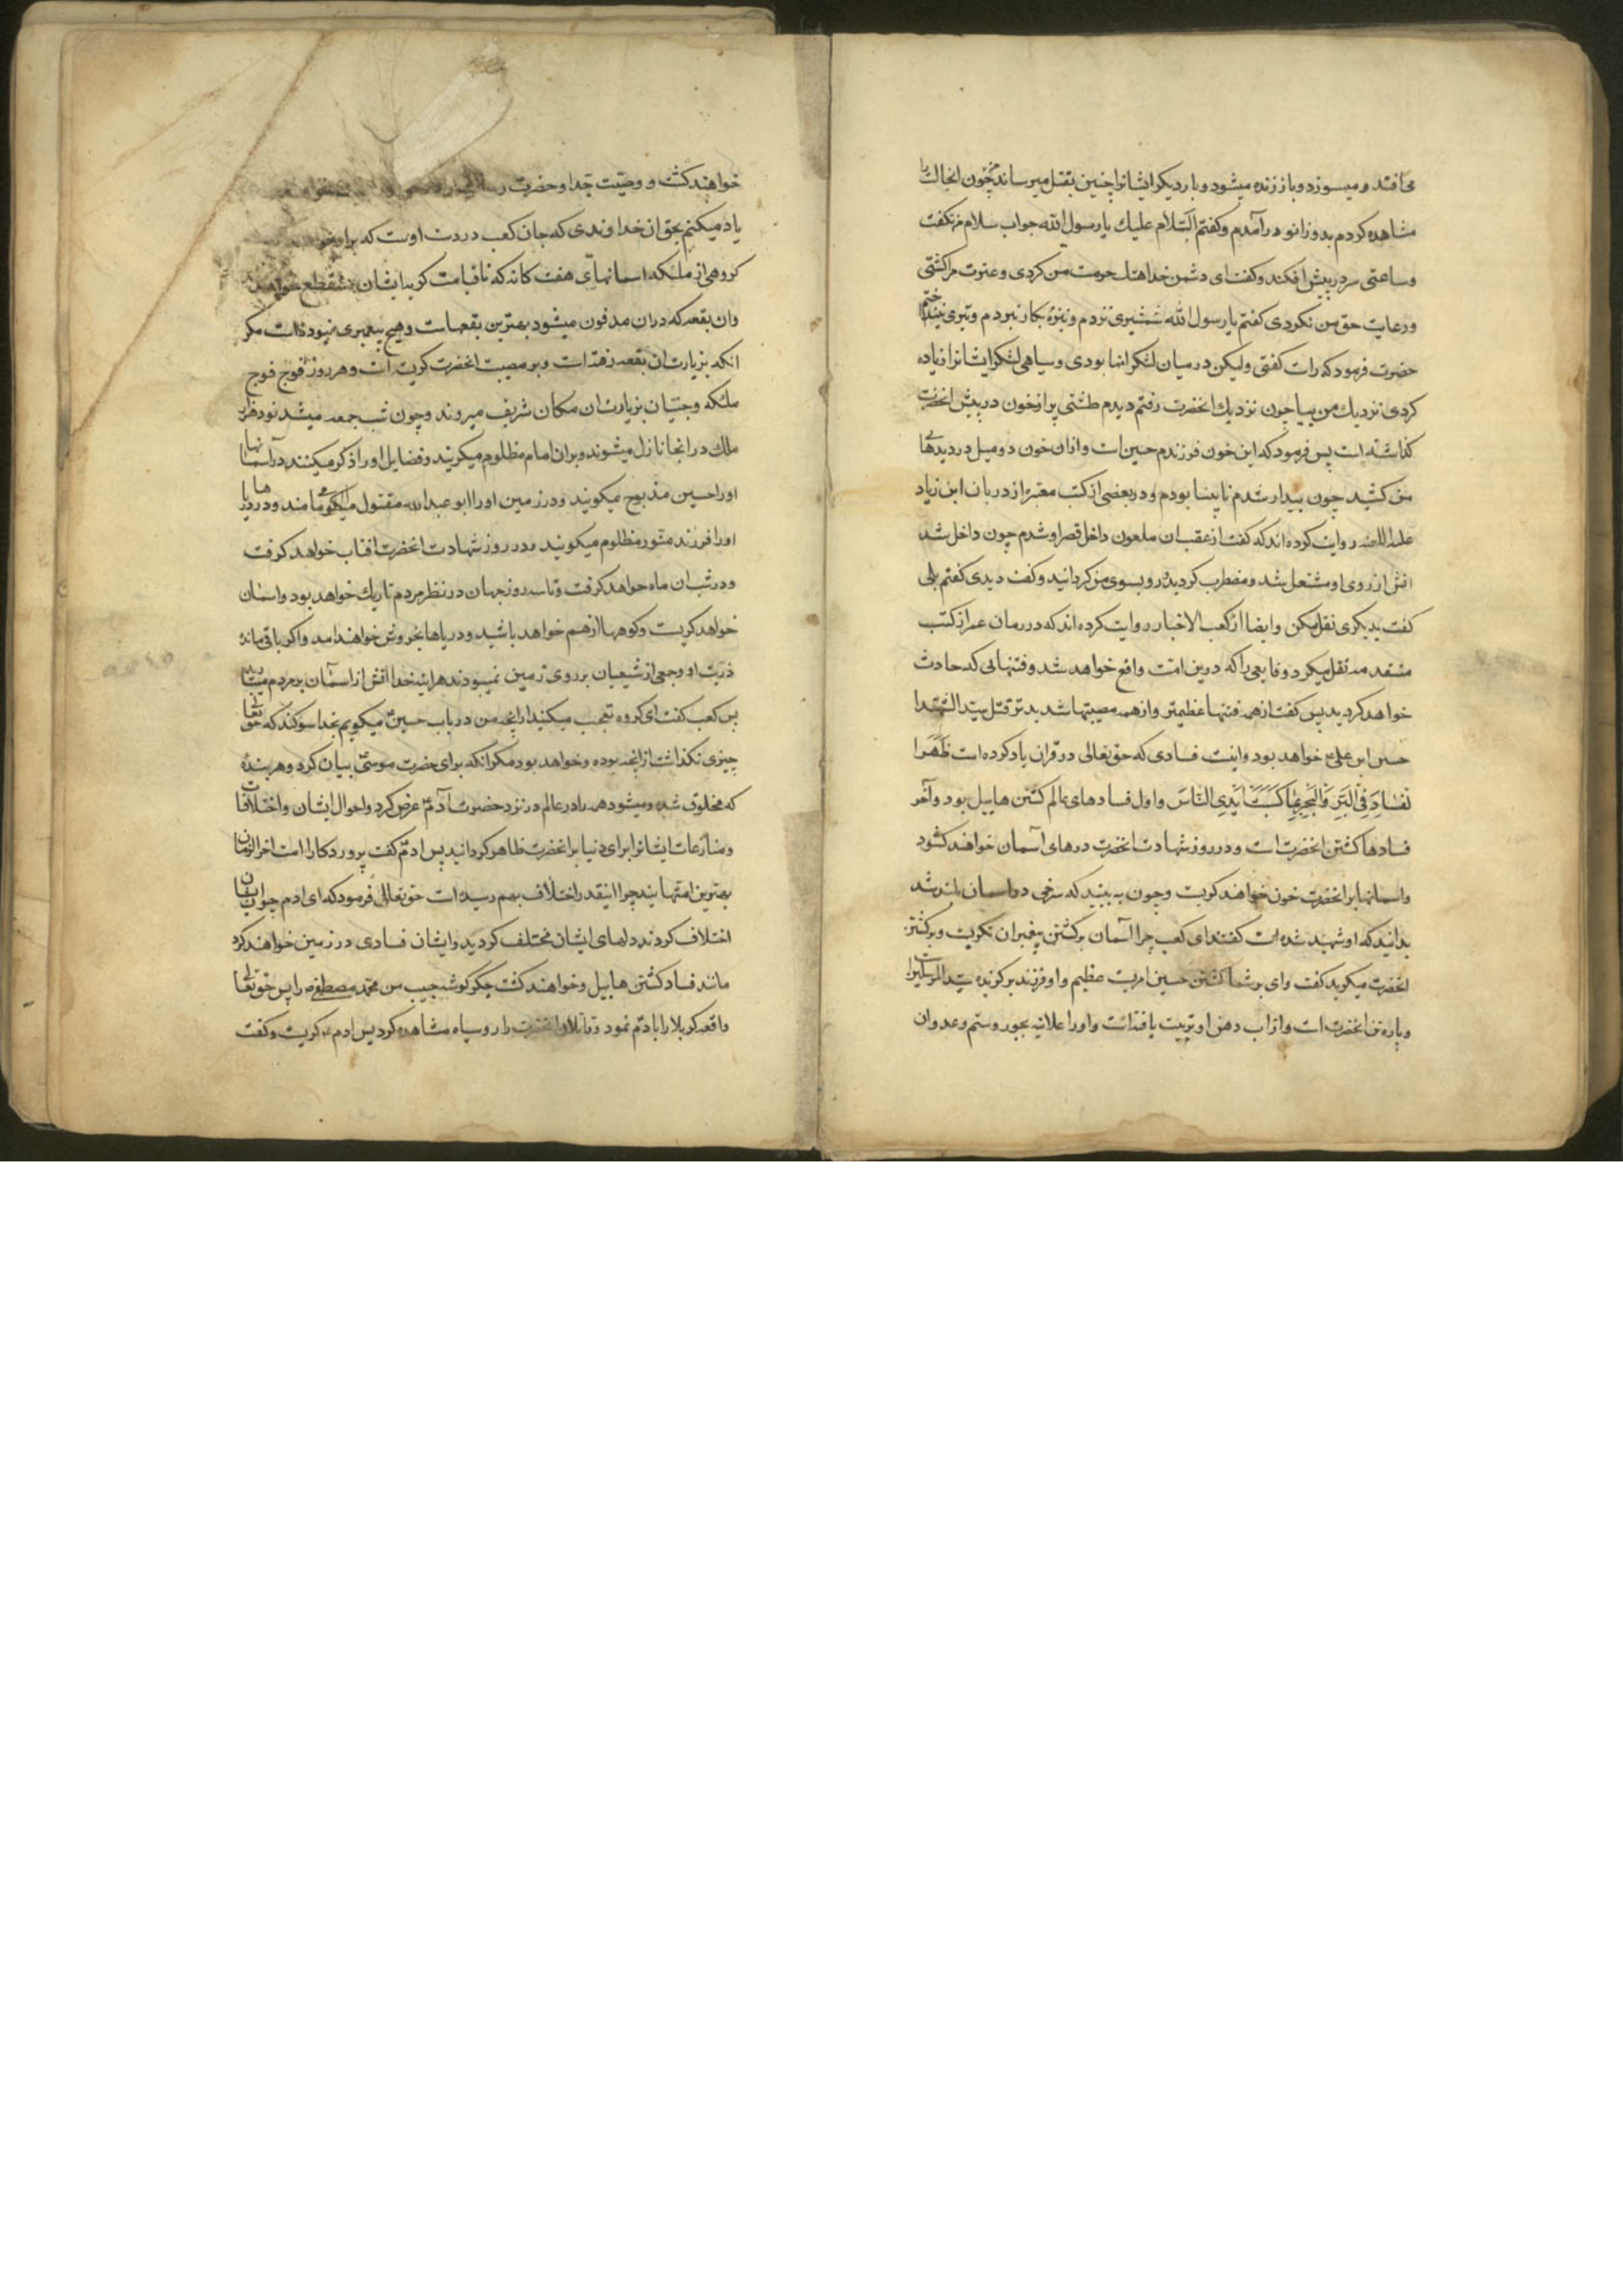 می افتد و میسوزد و باز زنده میشود و بار دیکر ایشانرا چنین بقتل میرساند چون انحال را
مشاهده کردم بدو زانو در آمدم و کفتم السّلام علیك یا رسول الله جواب سلام من نکفت
و ساعتی سر در پیش افکند و کفت ای دشمن خدا هتك حرمت من کردی و عترت مرا کشتی
و رعایت حق من نکردی کفتم یا رسول الله شمشیری نزدم و نیزه بکار نبردم و تیری نینداختم
حضرت فرمود که راست کفتی ولیکن در میان لشکر انها بودی و سیاهی لشکر ایشانرا زیاده
کردی نزدیك من بیا چون نزدیك انحضرت رفتم دیدم طشتی پر از خون در پیش انحضرت
کذاشته است پس فرمود که این خون فرزندم حسین است و ازان خون دو میل در دیدهای
من کشید چون بیدار شدم نابینا بودم و در بعضی از کتب معتبره از دربان ابن زیاد
روایت کرده اند که کفت از عقب ان ملعون داخل قصر او شدم چون داخل شد
اتش از روی او مشتعل شد و مضطرب کردید و رو بسوی من کردانید و کفت دیدی کفتم بلی
کفت بدیکری نقل مکن و ایضا از کعب الاخبار روایت کرده اند که در زمان عمر از کتب
متقدمه نقل میکرد وقایعی را که درین امّت واقع خواهد شد و فتنهائی که حادث
خواهد کردید پس کفت از همه فتنها عظیمتر و از همه مصیبتها شدیدتر قتل سیّد الشّهدا
حسین ابن علی خواهد بود و اینست فسادی که حق تعالی در قران یاد کرده است ظَهَرَ ا
لفَسَادُ فِی الْبَرِّ وَالْبَحْرِ بِمَا کَسَبَتْ اَیْدِی النَّاسِ و اول فسادهای عالم کشتن هابیل بود و آخر
فسادها کشتن انحضرت است و در روز شهادت انحضرت درهای آسمان خواهند کشود
و اسمانها بر انحضرت خون خواهند کریست و چون به بینید که سرخی در اسمان بلند شد
بدانید که او شهید شده است کفتند ای کعب چرا آسمان بر کشتن پیغمبران نکریست و بر کشتن
انحضرت میکوید کفت وای بر شما کشتن حسین امریست عظیم و او فرزند برکزیده سیّد المرسلین
و پاره تن انحضرت است و از اب دهن او تربیت یافته است و او را علانیه بجور و ستم و عدوان
خواهند کشت و وصیّت جد او حضرت
یاد میکنم بحق ان خداوندی که جان کعب در دست اوست که بر او
کروهی از ملئکه اسمانهای هفت کانه که تا قیامت کریه ایشان منقطع نخواهد
وان بقعه که دران مدفون میشود بهترین بقعهاست و هیچ پیغمبری نبوده است مکر
انکه بزیارت ان بقعه رفته است و بر مصیبت انحضرت کریسته است و هر روز فوج فوج
ملئکه و جنیّان بزیارت ان مکان شریف میروند و چون شب جمعه میشد نود هزار
ملك در انجا نازل میشوند و بران امام مظلوم میکریند و فضایل او را ذکر میکنند در آسمانها
او را حسین مذبوح میکویند و در زمین او را ابو عبد الله مقتول میکویند و در دریاها
او را فرزند منور مظلوم میکویند و در روز شهادت انحضرت افتاب خواهد کرفت
و در شب ان ماه خواهد کرفت و تا سه روز جهان در نظر مردم تاریك خواهد بود و اسمان
خواهد کریست و کوهها از هم خواهد پاشید و دریاها بخروش خواهند امد و اکر باقی مانده
ذریت او و جمعی از شیعیان بر روی زمین نمیبودند هراینه خدا اتش از اسمان بر مردم
پس کعب کفت ای کروه تعجب میکنید از انچه من در باب حسین میکویم بخدا سوکند که حق تعالی
چیزی نکذاشت از انچه بوده و خواهد بود مکر انکه برای حضرت موسی بیان کرد و هر بنده
که مخلوق شده و میشود همه را در عالم در نزد حضرت آدم عرض کرد و احوال ایشان و اختلافات
و منازعات ایشانرا برای دنیا بر انحضرت ظاهر کردانید پس ادم کفت پروردکارا امت اخر الزمان
بهترین امتهایند چرا اینقدر اختلاف بهم رسیده است حق تعالی فرمود که ای ادم چون ایشان
اختلاف کردند دلهای ایشان مختلف کردید و ایشان فسادی در زمین خواهند کرد
مانند فساد کشتن هابیل و خواهند کشت جکر کوشه حبیب من محمّد مصطفی را پس حق تعالی
واقعه کربلا را بادم نمود و قاتلان انحضرت را رو سیاه مشاهده کرد پس ادم کریست و کفت